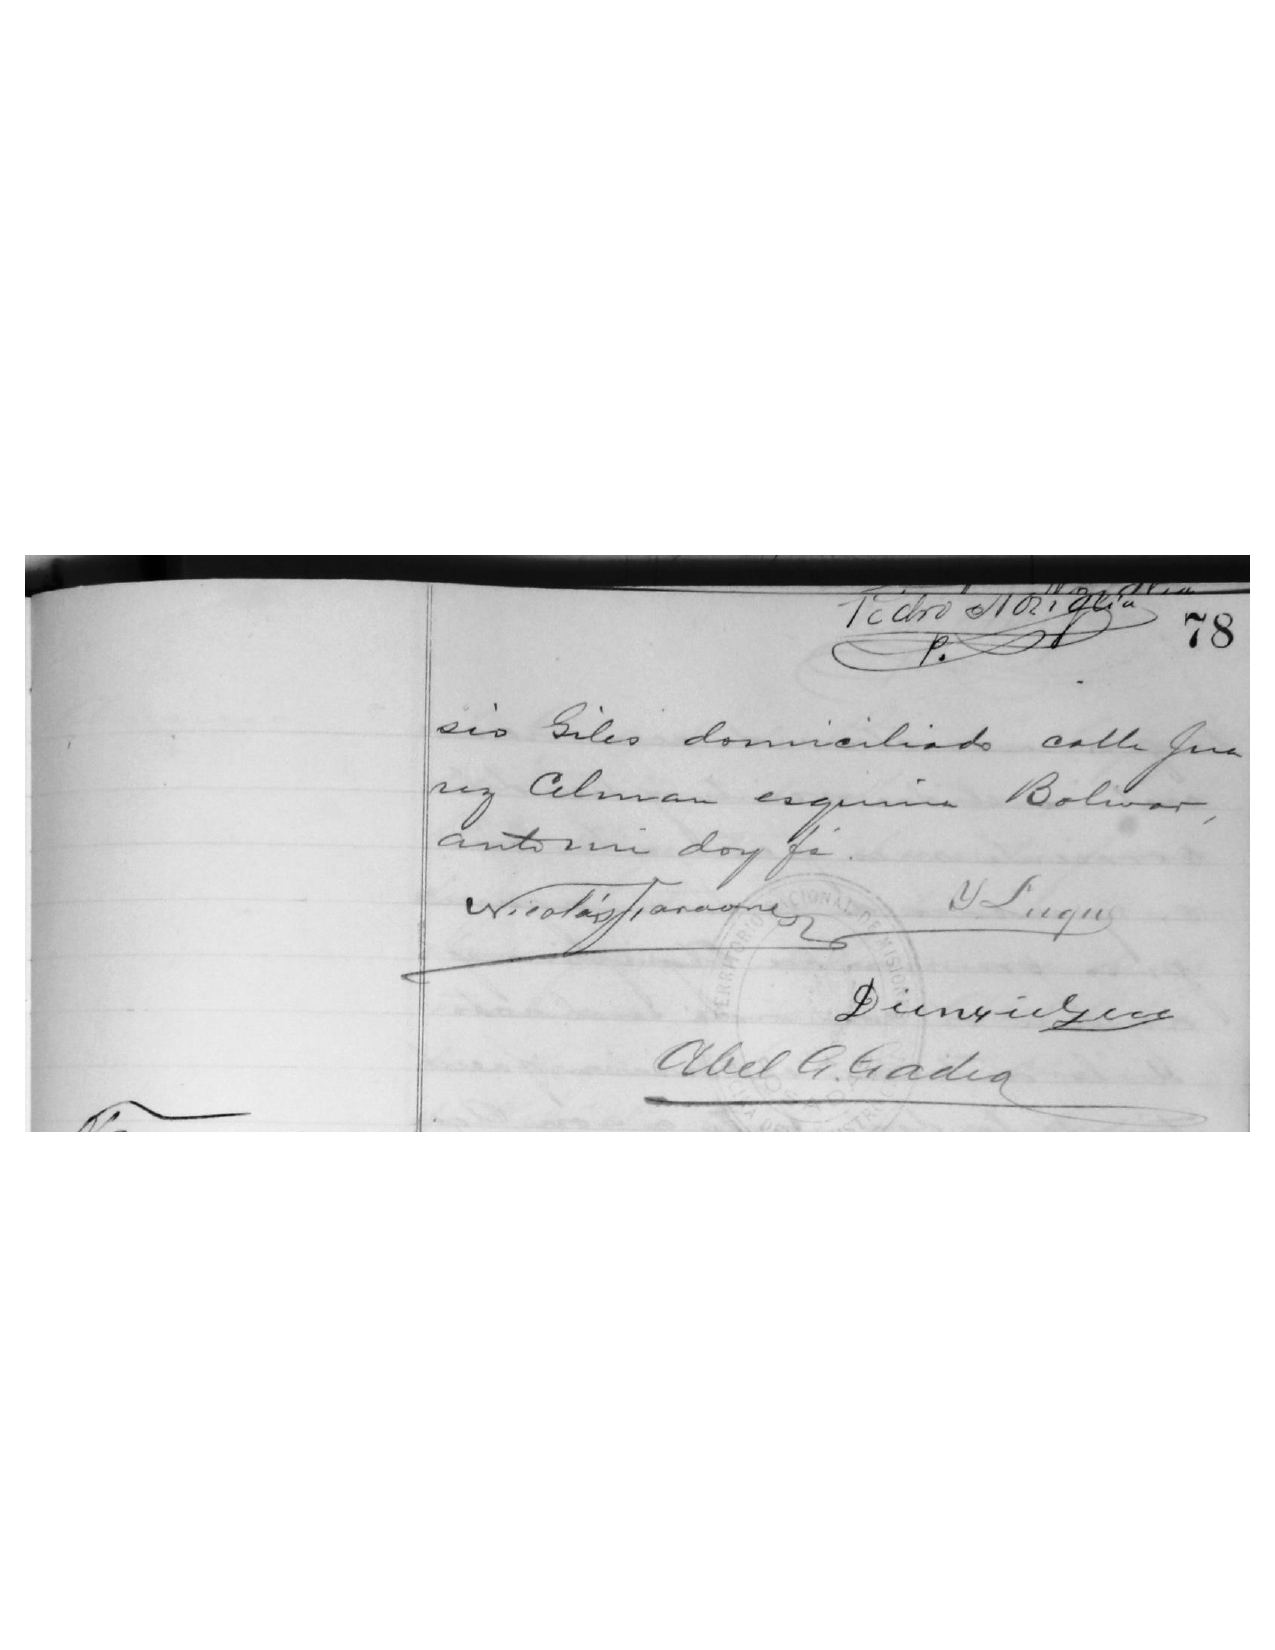 Pedro Noziglia
P.
78
sio Giles domiciliado calle Jua
rez Celman esquina Bolivar,
ante mi doy fé.
Nicolás Taraone
Y Luque
Abel G. Gadea
TERRITORIO NACIONAL DE MISION